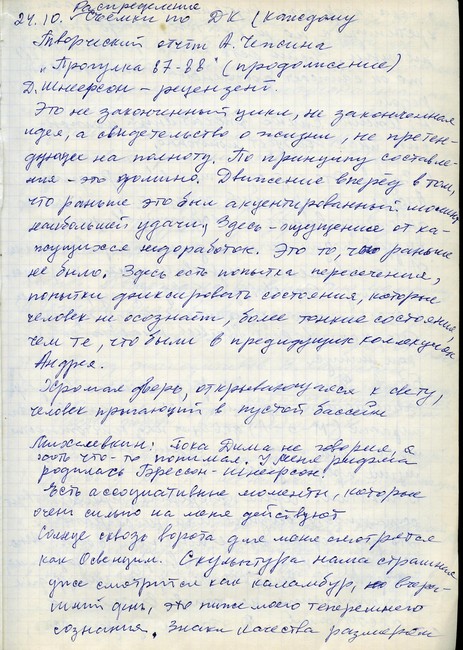 24.10. Распределение
Съёмки по ДК (каждому
Творческий отчёт А. Чежина
"Прогулка 87-88" (продолжение)
Д. Шнеерсон – рецензент.
Это не законченный цикл, не законченная
идея, а свидетельство о жизни, не претен-
дующее на полноту. По принципу составле-
ния – это домино. Движение вперёд в том,
что раньше это был акцентированный момент
наибольшей удачи, Здесь – ощущение от ка-
жущихся недоработок. Это то, чего раньше
не было. Здесь есть попытка пересечения,
попытки фиксировать состояния, которые
человек не осознаёт, более тонкие состояния,
чем те, что были в предидущих коллекциях
Андрея.
Хромая дверь, открывающаяся к свету,
человек прыгающий в пустой бассейн
Михалевкин: Пока Дима не говорил, я
хоть что-то понимал. У меня рифма
родилась Брессон-Шнеерсон!
Есть ассоциативные моменты, которые
очень сильно на меня действуют
Солнце сквозь ворота для меня смотрятся
как Освенцим. Скульптура нама страшная
уже смотрится как каламбур, вчера-
шний день, это ниже моего теперешнего
сознания. Знаки качества размером